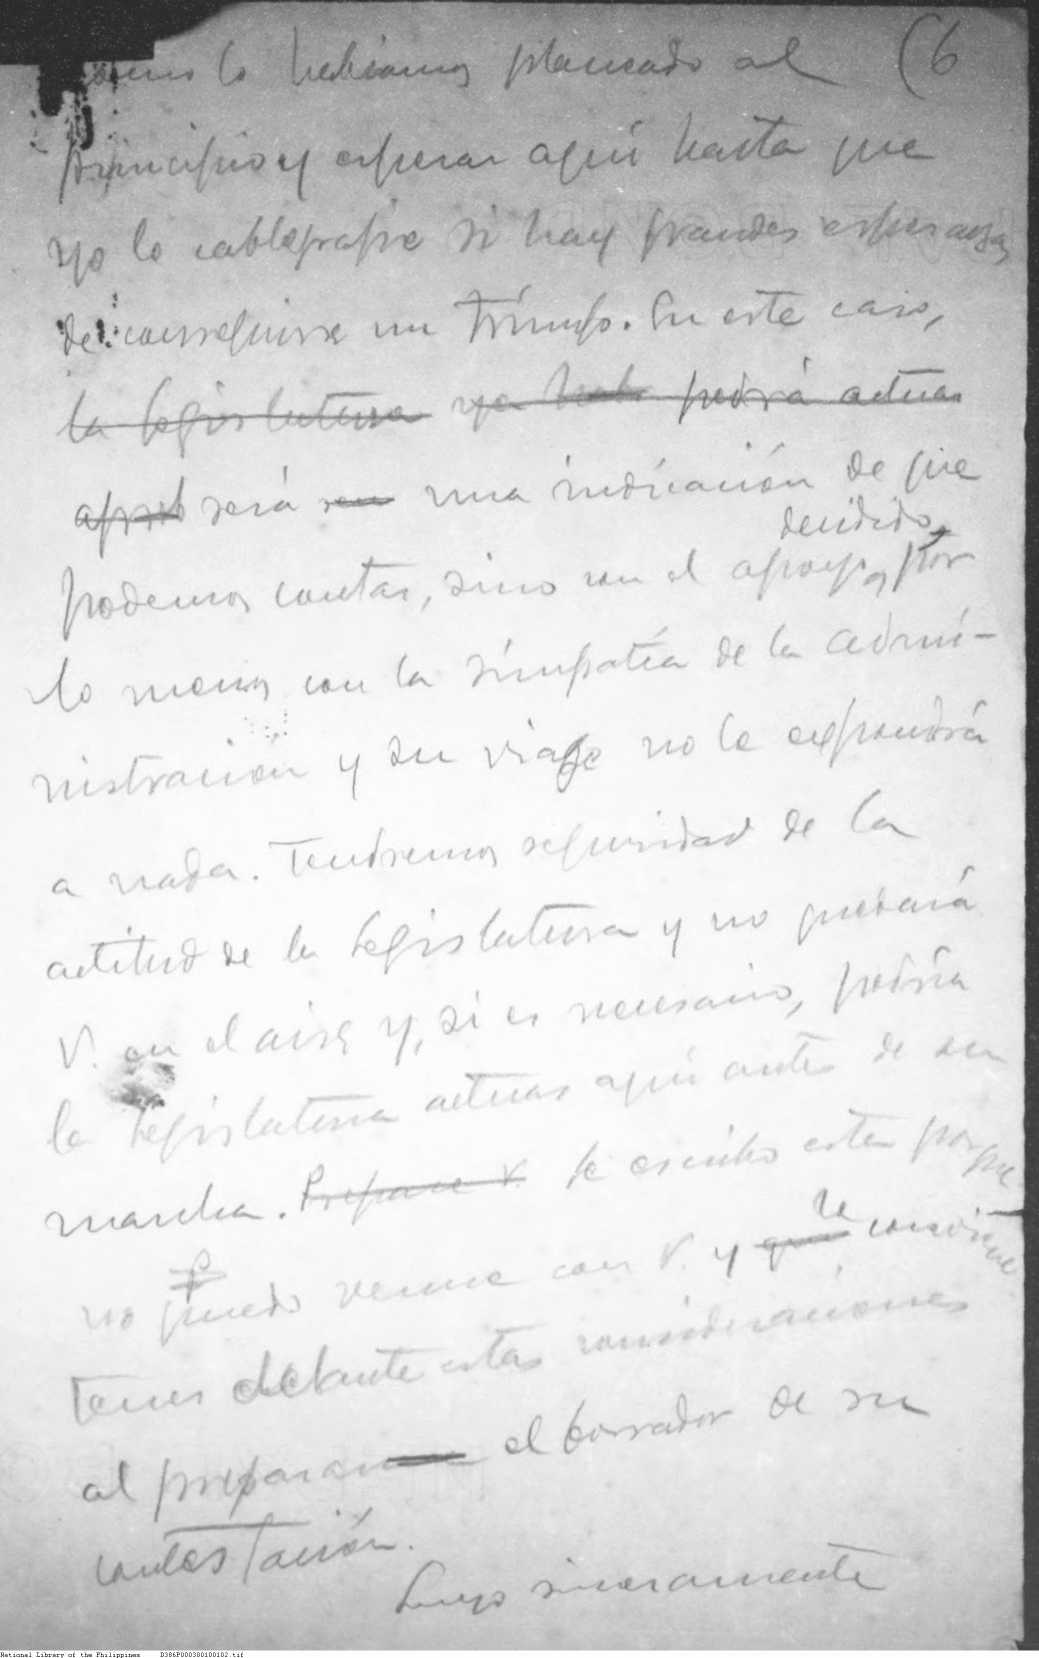 como lo habiamos planeado al (6
principio y esperar aquí hasta que
yo le cablegrafie si hay grandes esperanzas
de conseguirse un triunfo. En este caso,
la Legislatura ya podrá actuar
aprob será una indicación de que
decidido,
podemos contar, sino con el apoyo, por
lo menos con la simpatía de la admi-
nistracion y su viage no le expondrá
a nada. Tendremos seguridad de la
actitud de la Legislatura y no quedará
V. en el aire y, si es necesario, podria
la Legislatura actuar aquí antes de su
marcha. Prepare V. Le escribo esta porque
le
no puedo verme con V. y que conviene
tener delante estas consideraciones
al preparar el borrador de su
contestación.
Suyo sinceramente
National Library of the Philippines D386P000380100102.tif